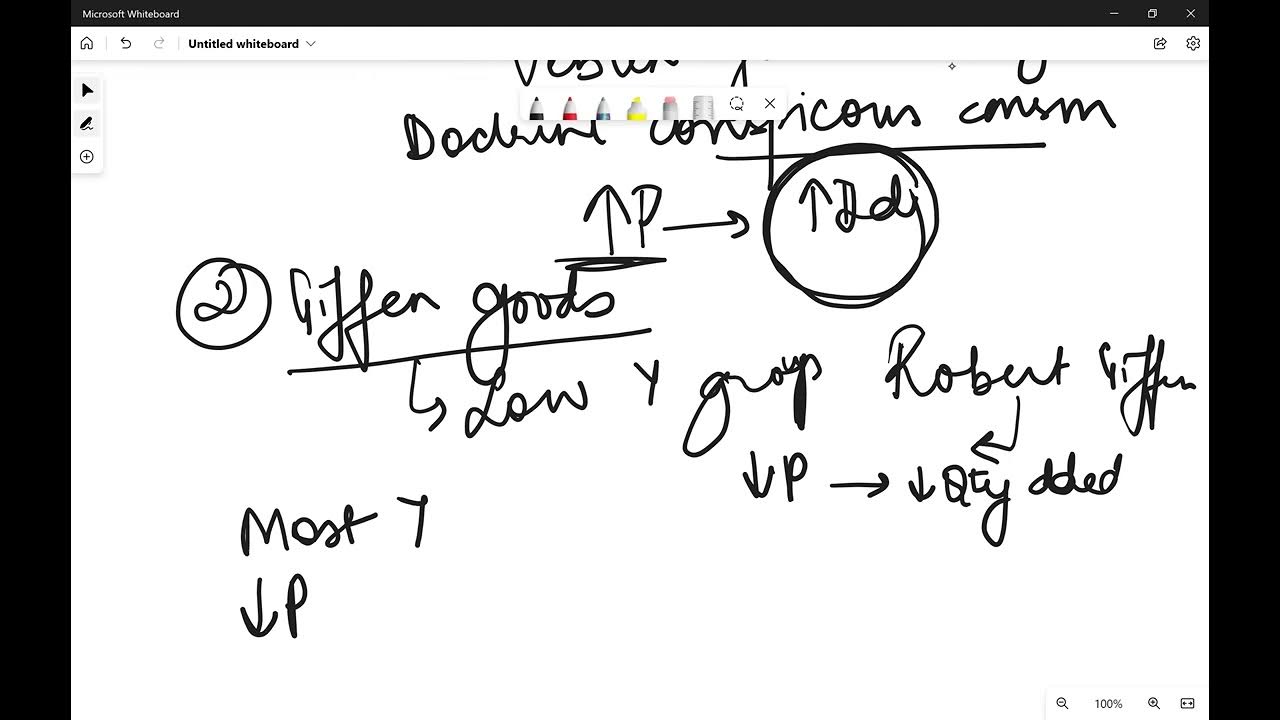 Microsoft Whiteboard
Untitled whiteboard
Doctrine conspicous consm
↑P → ↑Dd
② Giffen goods
↳ Low Y group Robert Giffen
↓P → ↓Qty dded
Most Y
↓P
100%